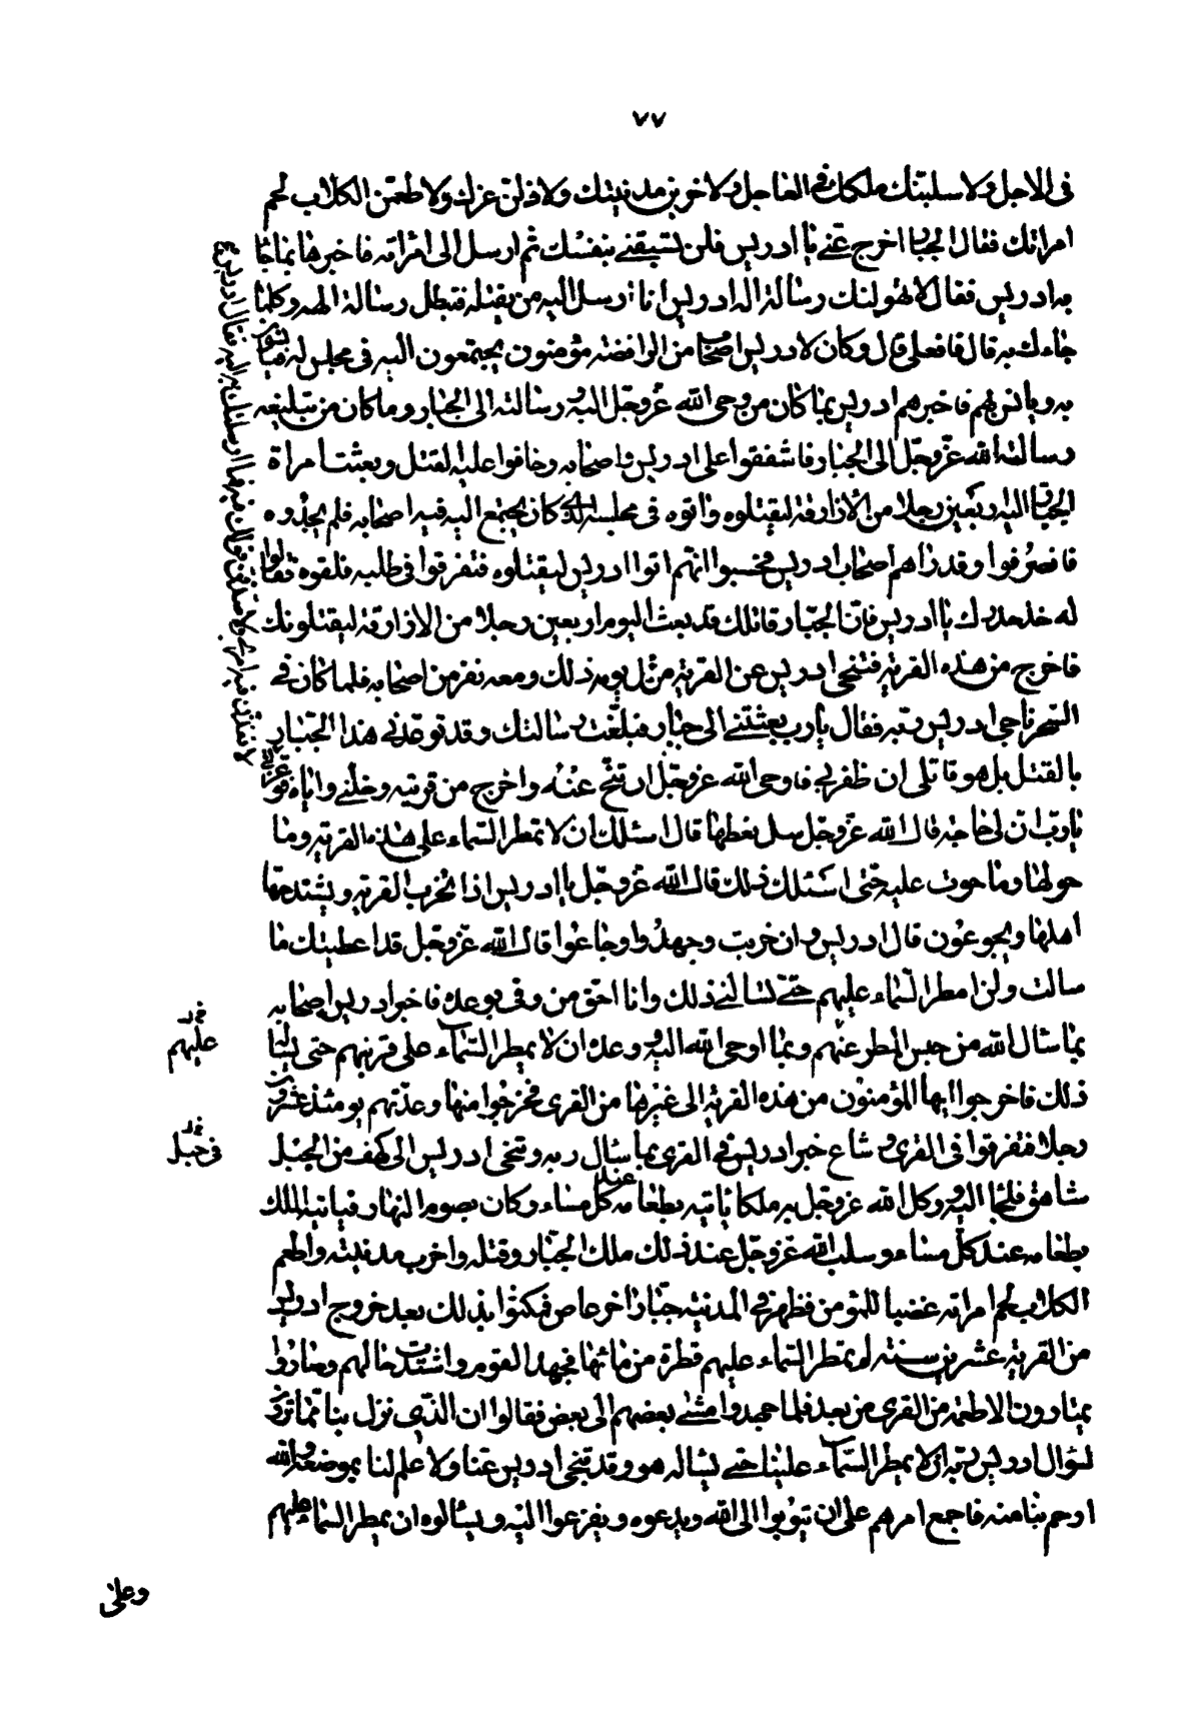 ٧٧
فى الاجل ولاسلبنك ملكك فى العاجل ولاخربن مدينتك ولاذلن عزك ولاطعمن الكلاب لحم
امراتك فقال الجبار اخرج عنى يا ادريس فلن تسبقنى بنفسك ثم ارسل الى امراته فاخبرها بما جاء
به ادريس فقالت لا تهولنك رسالة اله ادريس انا ارسل اليه من يقتله فتبطل رسالة الهه وكلما
جاءك به قال فافعلى قال وكان لادريس اصحاب من الرافضة مؤمنون يجتمعون اليه فى مجلس له فيانسون
به ويانس بهم فاخبرهم ادريس بما كان من وحى الله عز وجل اليه ورسالته الى الجبار وما كان من تبليغه
رسالة الله عز وجل الى الجبار فاشفقوا على ادريس واصحابه وخافوا عليه القتل وبعثت امراة
الجبار اليه اربعين رجلا من الازارقة ليقتلوه فاتوه فى مجلسه الذى كان يجتمع اليه فيه اصحابه فلم يجدوه
فانصرفوا وقد راهم اصحاب ادريس فحسبوا انهم اتوا ادريس ليقتلوه فتفرقوا فى طلبه فلقوه فقالوا
له خذ حذرك يا ادريس فان الجبار قاتلك قد بعث اليوم اربعين رجلا من الازارقة ليقتلونك
فاخرج من هذه القرية فتنحى ادريس عن القرية من يومه ذلك ومعه نفر من اصحابه فلما كان فى
السحر ناجى ادريس ربه فقال يا رب بعثتنى الى جبار فبلغت رسالتك وقد توعدنى هذا الجبار
بالقتل بل هو قاتلى ان ظفر بى فاوحى الله عز وجل ان تنح عنه واخرج من قريته وخلنى واياه فوعزتى
لانفذن فيه امرى ولاصدقن قولك فيه وما ارسلتك به اليه فقال ادريس
يا رب ان لى حاجة قال الله عز وجل سل تعطها قال اسئلك ان لا تمطر السماء على هذه القرية وما
حولها وما حوت عليه حتى اسئلك ذلك قال الله عز وجل يا ادريس اذا تخرب القرية ويشتد جهد
اهلها ويجوعون قال ادريس وان خربت وجهدوا وجاعوا قال الله عز وجل قد اعطيتك ما
سالت ولن امطر السماء عليهم حتى تسالنى ذلك وانا احق من وفى بوعده فاخبر ادريس اصحابه
بما سال الله من حبس المطر عنهم وبما اوحى الله اليه ووعده ان لا يمطر السماء على قريتهم حتى يساله
عليهم
ذلك فاخرجوا ايها المؤمنون من هذه القرية الى غيرها من القرى فخرجوا منها وعدتهم يومئذ عشرون
رجلا فتفرقوا فى القرى وشاع خبر ادريس فى القرى بما سال ربه وتنحى ادريس الى كهف من الجبل
فى جبل
شاهق فلجا اليه ووكل الله عز وجل به ملكا ياتيه بطعامه عند كل مساء وكان يصوم النهار فياتيه الملك
بطعامه عند كل مساء وسلب الله عز وجل عند ذلك ملك الجبار وقتله واخرب مدينته واطعم
الكلاب لحم امراته غضبا للمؤمن فظهر فى المدينة جبار اخر عاص فمكثوا بذلك بعد خروج ادريس
من القرية عشرين سنة لم تمطر السماء عليهم قطرة من مائها فجهد القوم واشتدت حالهم وصاروا
يمتارون الاطعمة من القرى من بعد فلما جهدوا مشى بعضهم الى بعض فقالوا ان الذى نزل بنا مما ترون
لسؤال ادريس ربه ان لا يمطر السماء علينا حتى يساله هو وقد تنحى ادريس عنا ولا علم لنا بموضعه والله
ارحم بنا منه فاجمع امرهم على ان يتوبوا الى الله ويدعوه ويفزعوا اليه ويسالوه ان يمطر السماء عليهم
وعلى